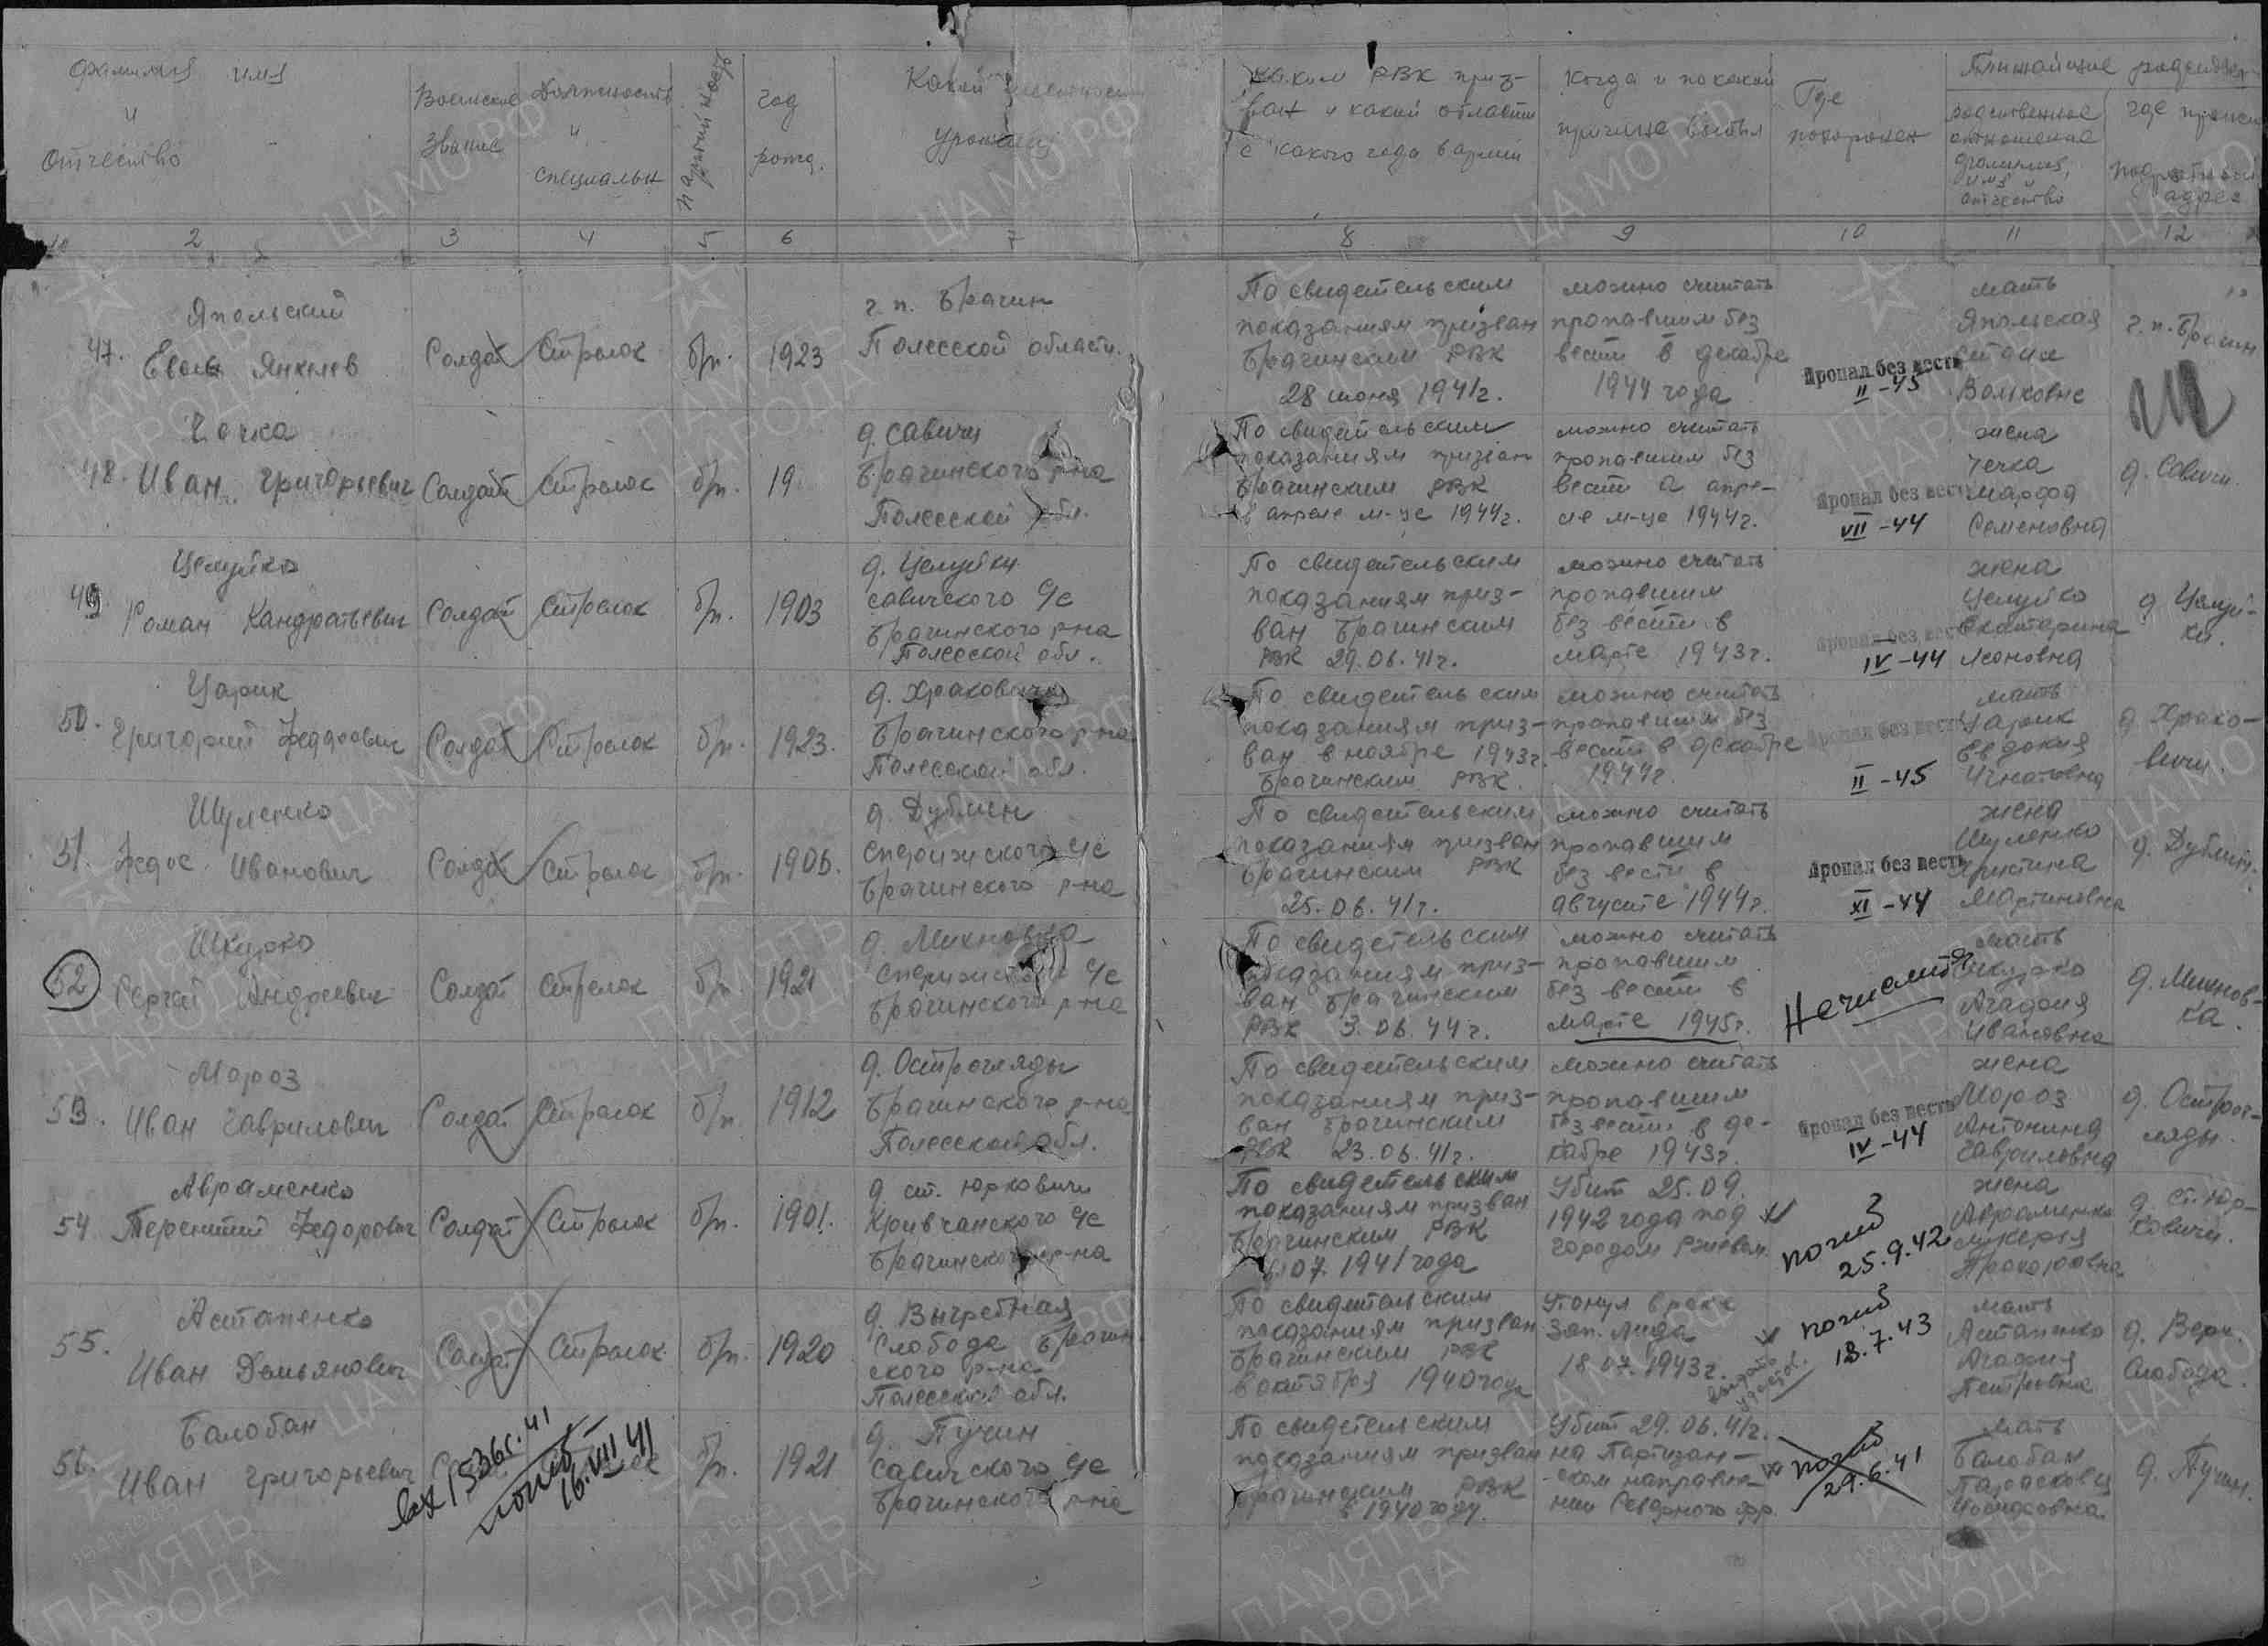 фамилия имя
и
отчество
Воинское
звание
Должность
и
специальн
партийность
год
рожд.
Какой местности
урожен
Каким РВК приз-
ван и какой области
с какого года в армии
Когда и по какой
причине выбыл
Где
похоронен
Ближайшие родствен
родственное
отношение
фамилия,
имя и
отчество
где прожи
подробный
адрес
2 3 4 5 6 7 8 9 10 11 12
47.
Япольский
Евель Янкелев
Солдат
Стрелок
б/п.
1923
г. п. Брагин
Полесской области.
По свидетельским
показаниям призван
Брагинским РВК
28 июня 1941г.
можно считать
пропавшим без
вести в декабре
1944 года
Пропал без вести
II-45
мать
Япольская
Волковне
г. п. Брагин
48.
Чечка
Иван Григорьевич
Солдат
Стрелок
б/п.
19
д. Савичи
Брагинского р-на
Полесской обл.
По свидетельским
показаниям призван
Брагинским РВК
в апреле м-це 1944г.
можно считать
пропавшим без
вести в апре-
ле м-це 1944г.
Пропал без вест
VII-44
жена
Чечка
Марфа
Семеновна
д. Савичи.
49
Целуйко
Роман Кандратьевич
Солдат
Стрелок
б/п.
1903
д. Целуйки
Савичского с/с
Брагинского р-на
Полесской обл.
По свидетельским
показаниям приз-
ван Брагинским
РВК 29.06.41г.
можно считать
пропавшим
без вести в
марте 1943г.
Пропал без вест
IV-44
жена
Целуйко
Екатарина
Леоновна
д. Целуй-
ки.
50.
Царик
Григорий Федорович
Солдат
Стрелок
б/п.
1923.
д. Храковичи
Брагинского р-на
Полесской обл.
По свидетельским
показаниям приз-
ван в ноябре 1943г.
Брагинским РВК.
можно считать
пропавшим без
вести в декабре
1944г.
Пропал без вест
II-45
мать
Царик
Евдокия
Игнатовна
д. Храко-
вичи.
51.
Шуленко
Федос Иванович
Солдат
Стрелок
б/п.
1906.
д. Дублин
Сперижского с/с
Брагинского р-на
По свидетельским
показаниям призван
Брагинским РВК
25.06.41г.
можно считать
пропавшим
без вести в
августе 1944г.
Пропал без вест
XI-44
жена
Шуленко
Христина
Мартиновна
д. Дублин.
52
Шкурко
Сергей Андреевич
Солдат
Стрелок
б/п.
1921
д. Михновка
Сперижского с/с
Брагинского р-на
По свидетельским
показаниям приз-
ван Брагинским
РВК 3.06.44г.
можно считать
пропавшим
без вести в
марте 1945г.
Не числится
мать
Шкурко
Агафия
Ивановна
д. Михнов-
ка.
53.
Мороз
Иван Гаврилович
Солдат
Стрелок
б/п.
1912
д. Острогляды
Брагинского р-на
Полесской обл.
По свидетельским
показаниям приз-
ван Брагинским
РВК 23.06.41г.
можно считать
пропавшим
без вести в де-
кабре 1943г.
Пропал без вести
IV-44
жена
Мороз
Антонина
Гавриловна
д. Острог-
ляды.
54
Авраменко
Терентий Федорович
Солдат
Стрелок
б/п.
1901.
д. ст. Юрковичи
Кривчанского с/с
Брагинского р-на
По свидетельским
показаниям призван
Брагинским РВК
07. 1941 года
Убит 25.09.
1942 года под
городом Ржевом.
погиб
25.9.42
жена
Авраменко
Лукерья
Прокоповна
д. Ст. Юр-
ковичи.
55.
Астапенко
Иван Демьянович
Солдат
Стрелок
б/п.
1920
д. Выгребная
Слобода Брагин
ского р-на
Полесской обл.
По свидетельским
показаниям призван
Брагинским РВК
в октября 1940 года
Утонул в реке
Зап. Лида
18.07.1943г.
погиб
18.7.43
мать
Астапенко
Агафия
Петровна
д. Верх.
Слобода.
56.
Балобан
Иван Григорьевич
вх 1536с.41
погиб
16.VII 41
б/п.
1921
д. Пучин
Савичского с/с
Брагинского р-на
По свидетельским
показаниям призван
Брагинским РВК
в 1940 году.
Убит 29.06.41г.
на Партизан-
ском направле-
нии Северного фр.
погиб
29.6.41
мать
Балобан
Парасковия
Иосиховна
д. Пучин.